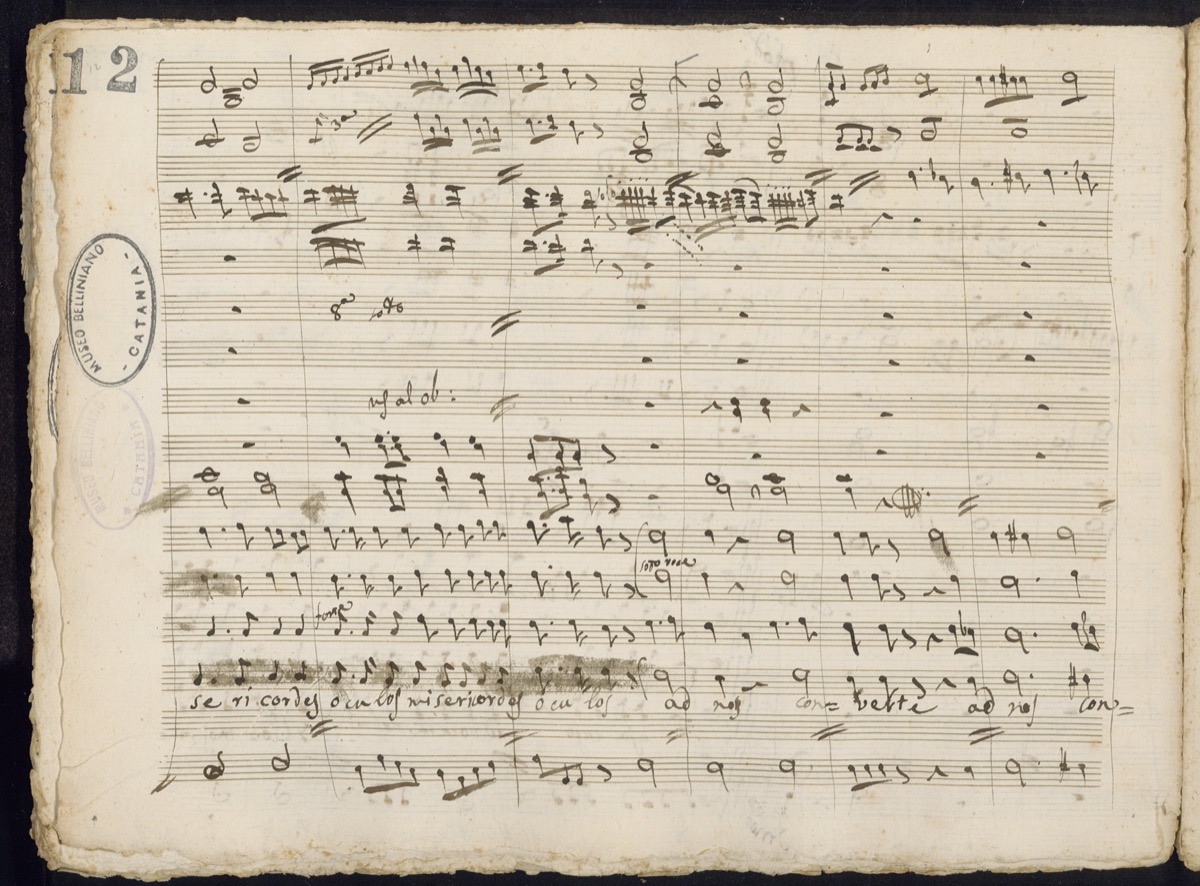 12
8va sotto
MUSEO BELLINIANO
- CATANIA -
MUSEO BELLINIANO
CATANIA
al ob:
soto voce
forte
se ri cordes o cu los misericordes o cu los ad nos con= verte ad nos con=